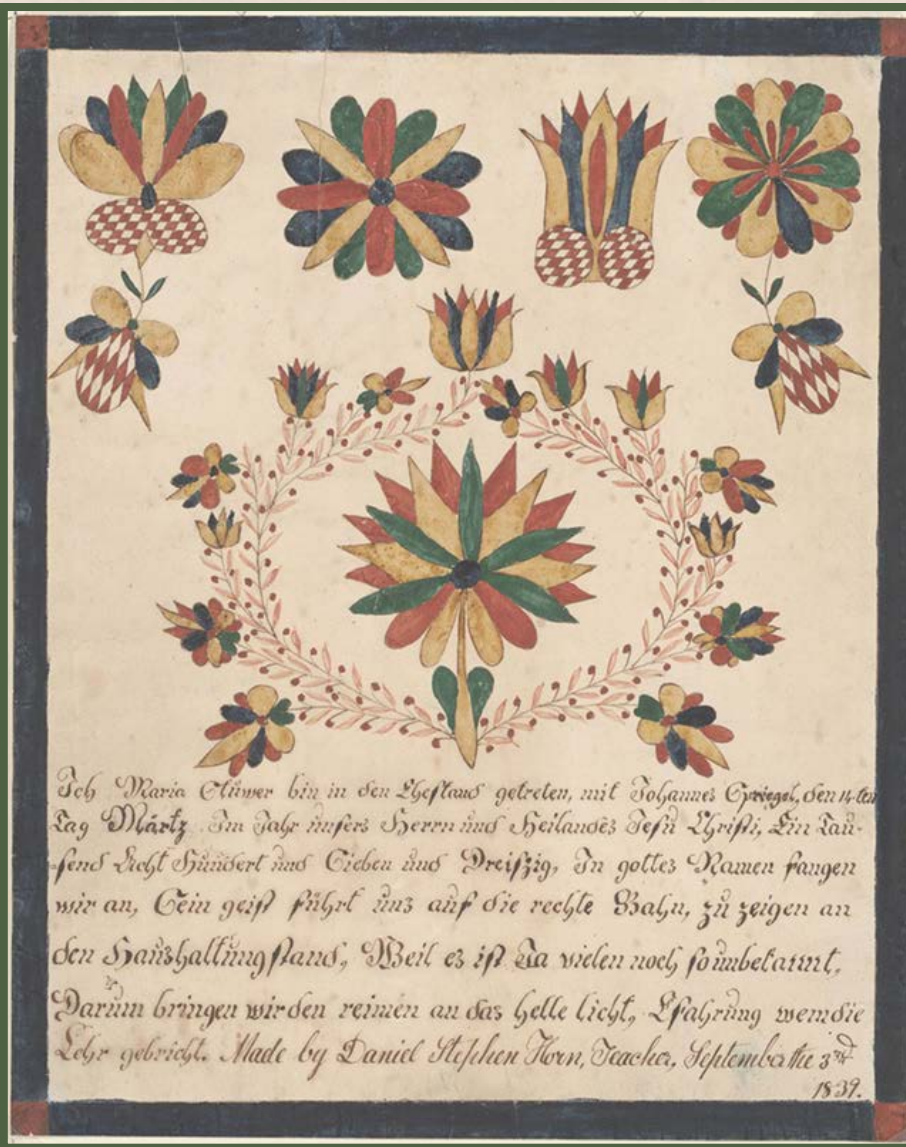 Ich Maria Stüwer bin in den Ehestand getreten, mit Johannes Spriegel, den 14-ten
Tag Märtz. Im Jahr unsers Herrn und Heilandes Jesu Christi, Ein Tau-
send Acht Hundert und Sieben und Dreißig, In gottes Namen fangen
wir an, Sein geist führt uns auf die rechte Bahn, zu zeigen an
den Haushaltungstand, Weil es ist Ja vielen noch so unbekannt,
Darum bringen wir den reimen an das helle licht, Efahrung wem die
Lehr gebricht. Made by Daniel Stephen Horn, Teacher, September the 3rd
1839.